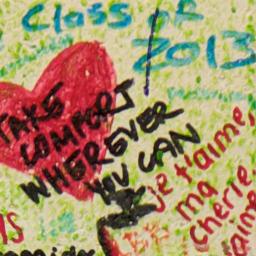 Class of
2013
TAKE
COMFORT
WHEREVER
YOU CAN
je t'aime,
ma
cherie.